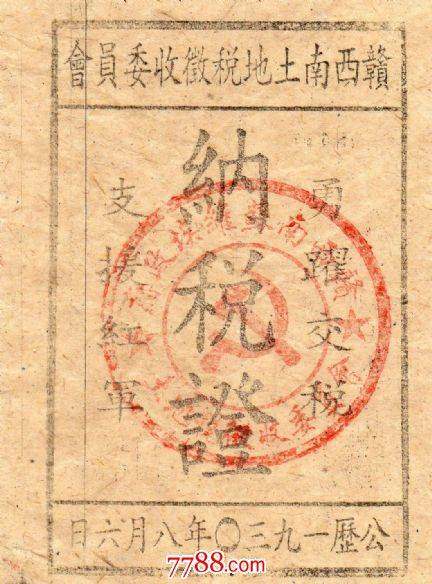 贛西南土地税徵收委員會
勇躍交税
納税證
支援紅軍
公歷一九三〇年八月六日
7788.com